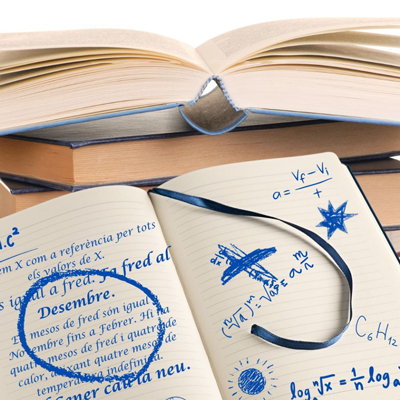 .c²
em X com a referència per tots
els valors de X.
s igual a fred. Fa fred al
Desembre.
El mesos de fred són igual a
Novembre fins a Febrer. Hi ha
quatre mesos de fred i quatre de
calor, deixant quatre mesos de
temperatura indefinida.
Gener cau la neu.
a = (Vf - Vi) / t
(ⁿ√a)ᵐ = ⁿ√aᵐ = a^(m/n)
C₆H₁₂
log ⁿ√x = 1/n log a